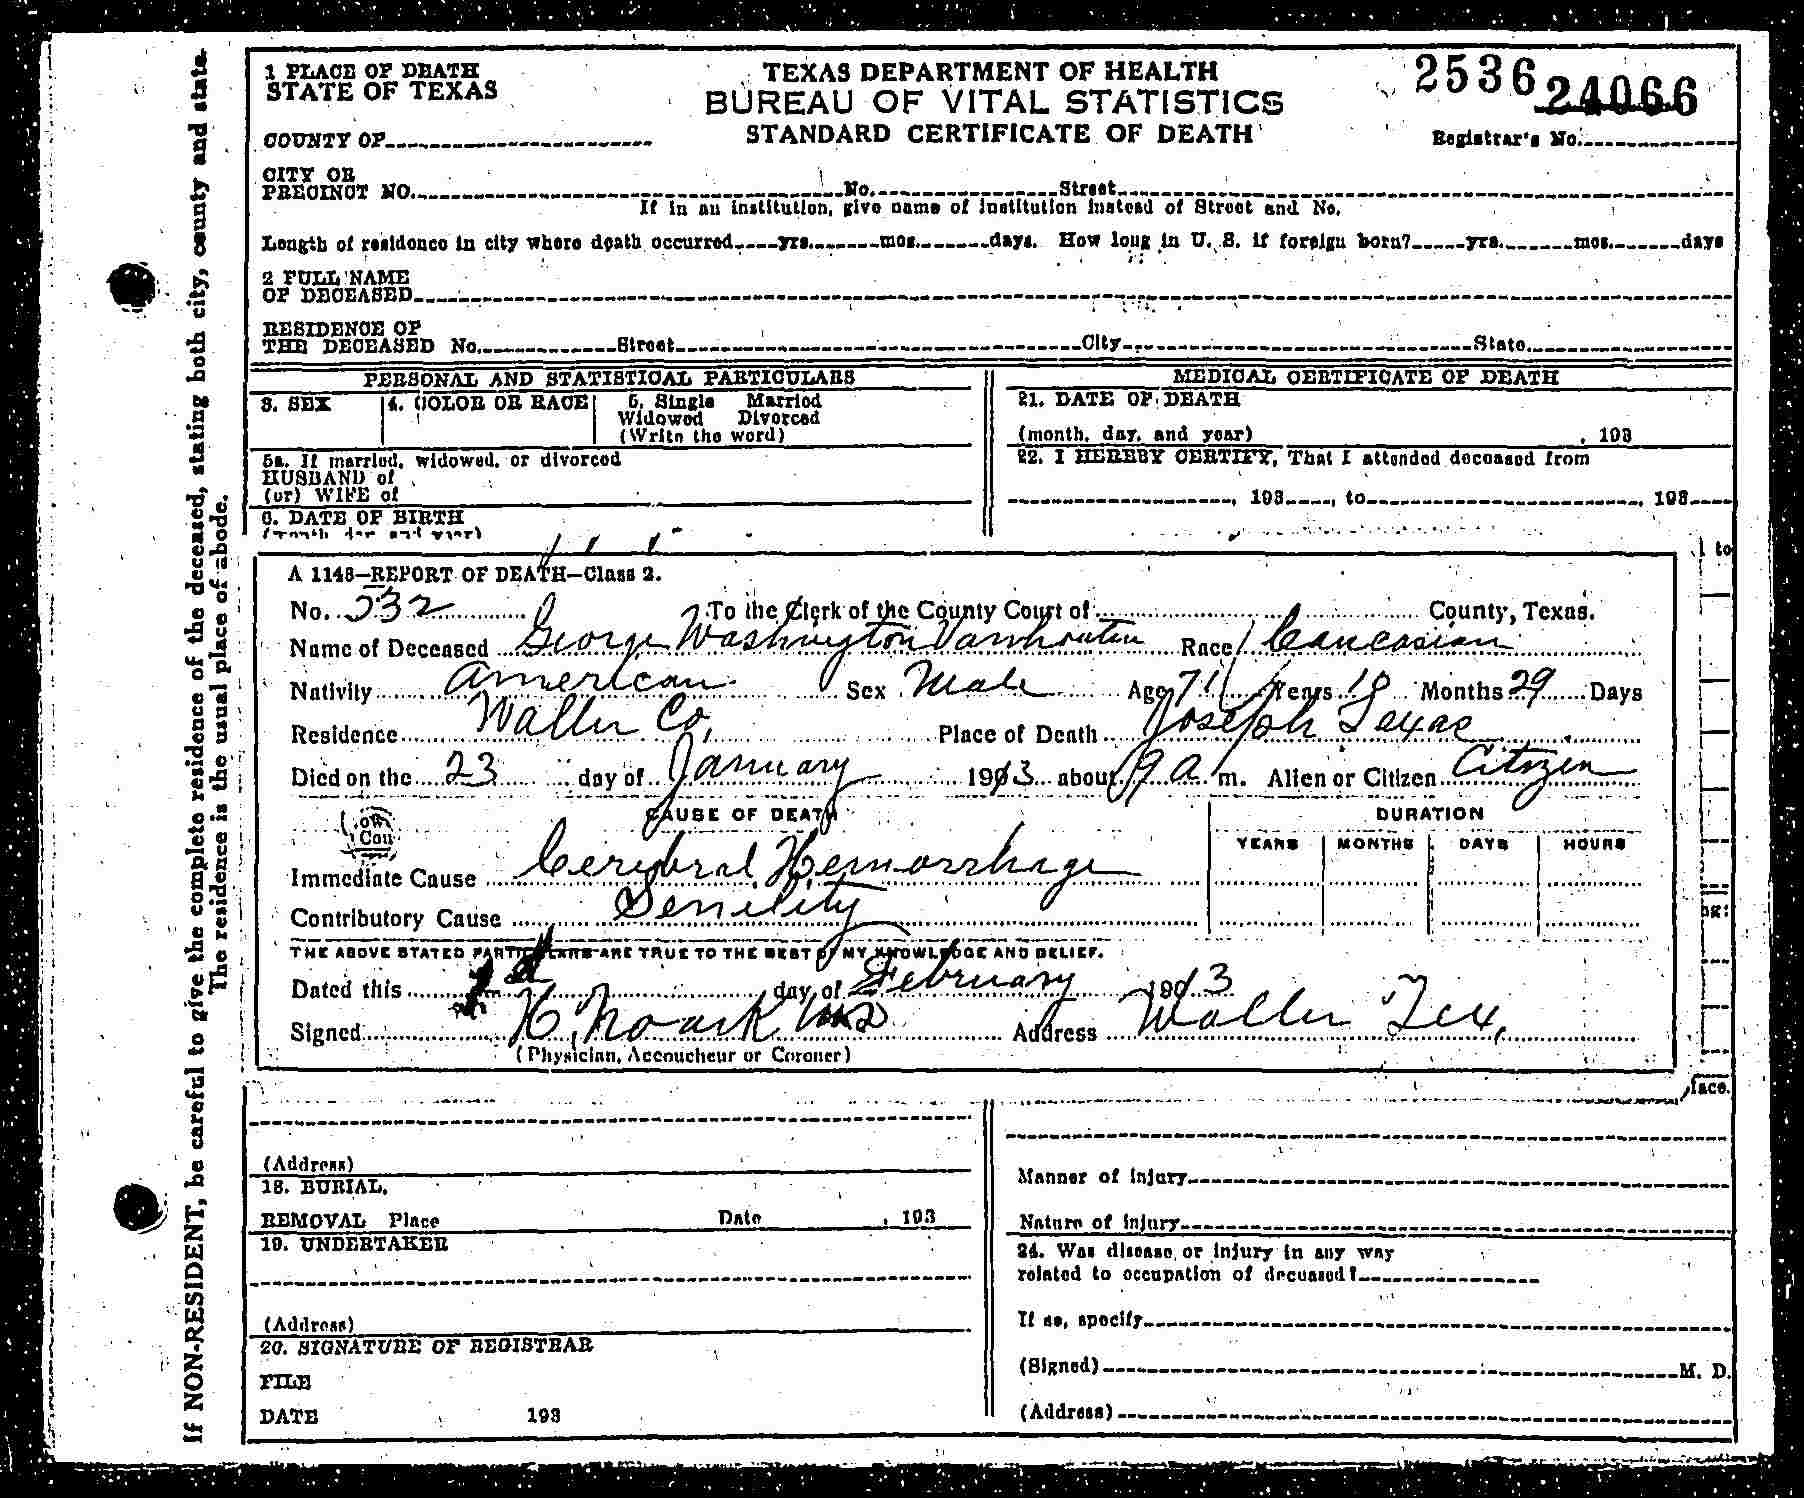 1 PLACE OF DEATH
STATE OF TEXAS
COUNTY OF
TEXAS DEPARTMENT OF HEALTH
BUREAU OF VITAL STATISTICS
STANDARD CERTIFICATE OF DEATH
2536 24066
Registrar's No.
CITY OR
PRECINCT NO. No. Street
If in an institution, give name of institution instead of Street and No.
Length of residence in city where death occurred yrs. mos. days. How long in U. S. if foreign born? yrs. mos. days
2 FULL NAME
OF DECEASED
RESIDENCE OF
THE DECEASED No. Street City State
PERSONAL AND STATISTICAL PARTICULARS
3. SEX 4. COLOR OR RACE 5. Single Married
Widowed Divorced
(Write the word)
5a. If married, widowed, or divorced
HUSBAND of
(or) WIFE of
6. DATE OF BIRTH
(month day and year)
MEDICAL CERTIFICATE OF DEATH
21. DATE OF DEATH
(month, day, and year) , 193
22. I HEREBY CERTIFY, That I attended deceased from
, 193 , to , 193
to
A 1148—REPORT OF DEATH—Class 2.
No. 532 To the Clerk of the County Court of County, Texas.
Name of Deceased George Washington Vanhouten Race Caucasian
Nativity American Sex Male Age 71 Years 10 Months 29 Days
Residence Waller Co, Place of Death Joseph Texas
Died on the 23 day of January 1903 about 9 a m. Alien or Citizen Citizen
CAUSE OF DEATH DURATION
YEARS MONTHS DAYS HOURS
Immediate Cause Cerebral Hemorrhage
Contributory Cause Senility
THE ABOVE STATED PARTICULARS ARE TRUE TO THE BEST OF MY KNOWLEDGE AND BELIEF.
Dated this day of February 1903
Signed H. Noark MD Address Waller Tex,
(Physician, Accoucheur or Coroner)
face.
(Address)
18. BURIAL,
REMOVAL Place Date , 193
19. UNDERTAKER
(Address)
20. SIGNATURE OF REGISTRAR
FILE
DATE 193
Manner of injury
Nature of injury
24. Was disease or injury in any way
related to occupation of deceased?
If so, specify
(Signed) M. D.
(Address)
If NON-RESIDENT, be careful to give the complete residence of the deceased, stating both city, county and state.
The residence is the usual place of abode.